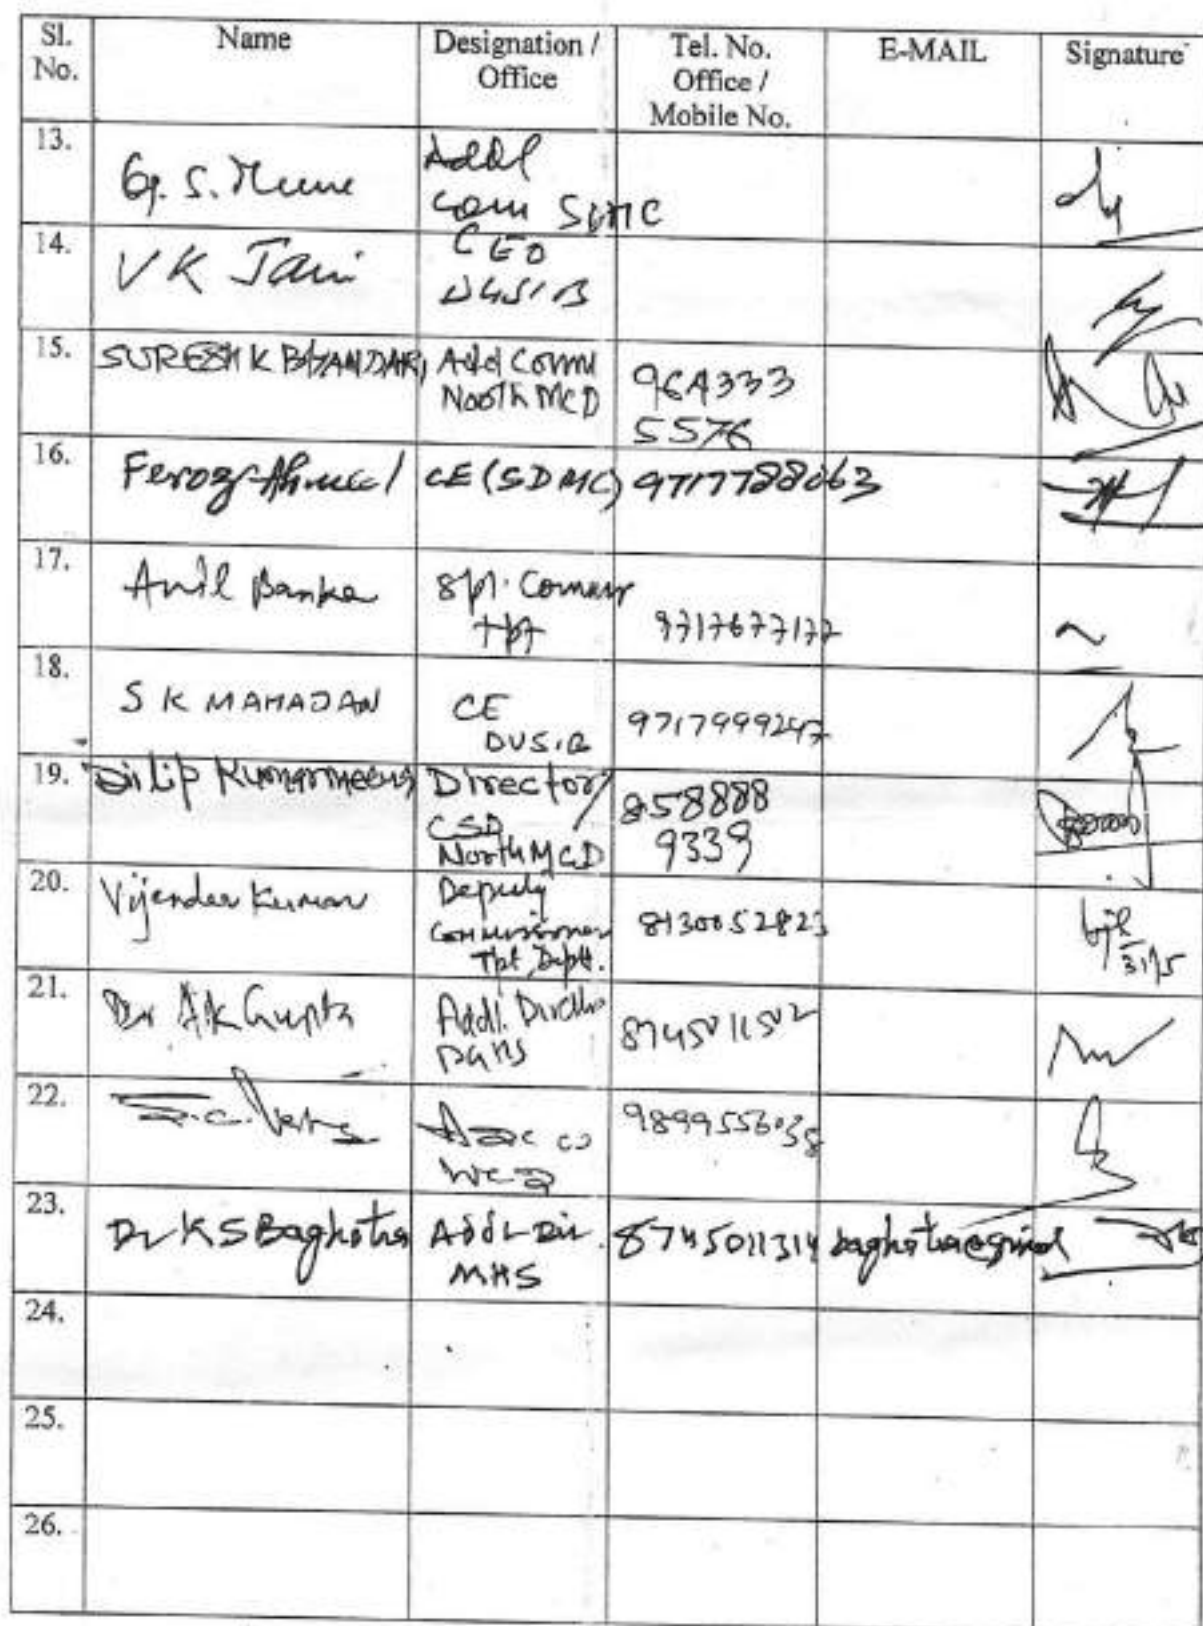 Sl. No. Name Designation / Office Tel. No. Office / Mobile No. E-MAIL Signature
13.
G. S. Addl
14.
V K Jain CEO
15.
SURESH K BHANDARI Add Comm
North MCD 964333
5576
16.
Feroz Ahmed CE (SDMC) 9717788063
17.
Anil Banka Spl. Commr
Tpt 9717677177
18.
S K MAHAJAN CE
DUSIB 9717999247
19. Dilip Kumar meena Director
CSD
North MCD 858888
9339
20.
Vijender Kumar Deputy
Commissioner
Tpt. Deptt. 8130052823
21.
Dr A.K Gupta Addl. Director
DGHS 8745011502
22.
9899556038
23.
Dr K S Baghotra Addl Dir.
MHS 8745011314
24.
25.
26.